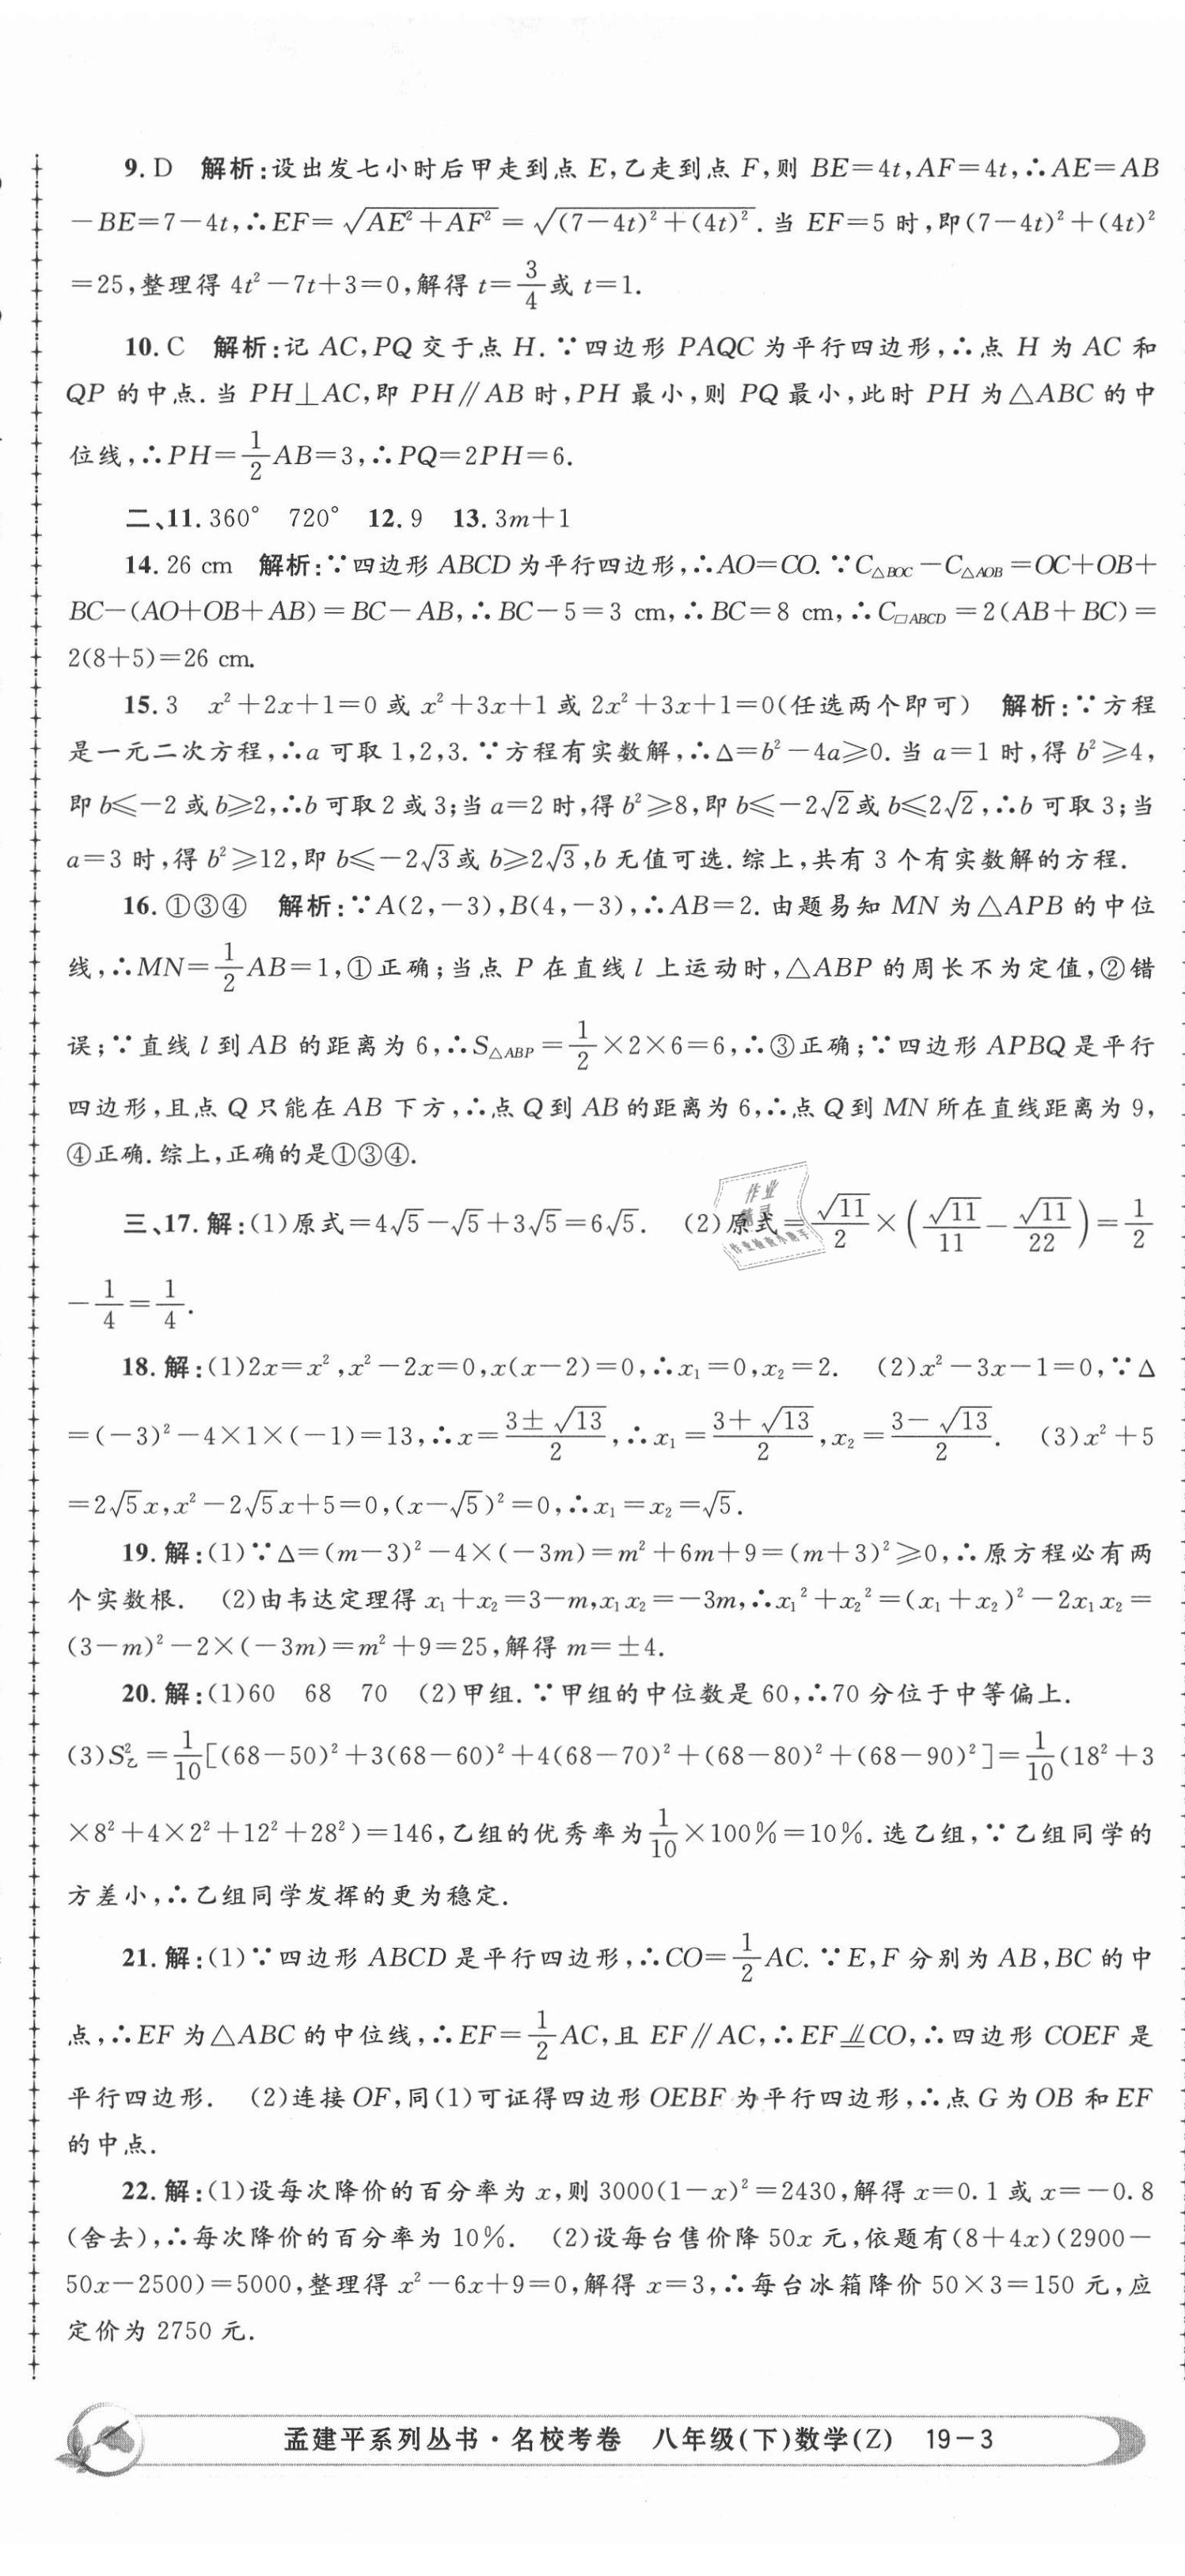 9. D 解析:设出发七小时后甲走到点 E,乙走到点 F,则 BE=4t,AF=4t,∴AE=AB
-BE=7-4t,∴EF=√(AE²+AF²)=√((7-4t)²+(4t)²). 当 EF=5 时,即(7-4t)²+(4t)²
=25,整理得 4t²-7t+3=0,解得 t=3/4或 t=1.
10. C 解析:记 AC,PQ 交于点 H. ∵四边形 PAQC 为平行四边形,∴点 H 为 AC 和
QP 的中点. 当 PH⊥AC,即 PH∥AB 时,PH 最小,则 PQ 最小,此时 PH 为△ABC 的中
位线,∴PH=1/2AB=3,∴PQ=2PH=6.
二、11. 360° 720° 12. 9 13. 3m+1
14. 26 cm 解析:∵四边形 ABCD 为平行四边形,∴AO=CO. ∵C△BOC-C△AOB=OC+OB+
BC-(AO+OB+AB)=BC-AB,∴BC-5=3 cm,∴BC=8 cm,∴C▱ABCD=2(AB+BC)=
2(8+5)=26 cm.
15. 3 x²+2x+1=0 或 x²+3x+1 或 2x²+3x+1=0(任选两个即可) 解析:∵方程
是一元二次方程,∴a 可取 1,2,3. ∵方程有实数解,∴Δ=b²-4a≥0. 当 a=1 时,得 b²≥4,
即 b≤-2 或 b≥2,∴b 可取 2 或 3;当 a=2 时,得 b²≥8,即 b≤-2√2或 b≤2√2,∴b 可取 3;当
a=3 时,得 b²≥12,即 b≤-2√3或 b≥2√3,b 无值可选. 综上,共有 3 个有实数解的方程.
16. ①③④ 解析:∵A(2,-3),B(4,-3),∴AB=2. 由题易知 MN 为△APB 的中位
线,∴MN=1/2AB=1,①正确;当点 P 在直线 l 上运动时,△ABP 的周长不为定值,②错
误;∵直线 l 到 AB 的距离为 6,∴S△ABP=1/2×2×6=6,∴③正确;∵四边形 APBQ 是平行
四边形,且点 Q 只能在 AB 下方,∴点 Q 到 AB 的距离为 6,∴点 Q 到 MN 所在直线距离为 9,
④正确. 综上,正确的是①③④.
三、17. 解:(1)原式=4√5-√5+3√5=6√5. (2)原式=√11/2×(√11/11-√11/22)=1/2
-1/4=1/4.
18. 解:(1)2x=x²,x²-2x=0,x(x-2)=0,∴x₁=0,x₂=2. (2)x²-3x-1=0,∵Δ
=(-3)²-4×1×(-1)=13,∴x=(3±√13)/2,∴x₁=(3+√13)/2,x₂=(3-√13)/2. (3)x²+5
=2√5x,x²-2√5x+5=0,(x-√5)²=0,∴x₁=x₂=√5.
19. 解:(1)∵Δ=(m-3)²-4×(-3m)=m²+6m+9=(m+3)²≥0,∴原方程必有两
个实数根. (2)由韦达定理得 x₁+x₂=3-m,x₁x₂=-3m,∴x₁²+x₂²=(x₁+x₂)²-2x₁x₂=
(3-m)²-2×(-3m)=m²+9=25,解得 m=±4.
20. 解:(1)60 68 70 (2)甲组. ∵甲组的中位数是 60,∴70 分位于中等偏上.
(3)S²乙=1/10[(68-50)²+3(68-60)²+4(68-70)²+(68-80)²+(68-90)²]=1/10(18²+3
×8²+4×2²+12²+28²)=146,乙组的优秀率为1/10×100%=10%. 选乙组,∵乙组同学的
方差小,∴乙组同学发挥的更为稳定.
21. 解:(1)∵四边形 ABCD 是平行四边形,∴CO=1/2AC. ∵E,F 分别为 AB,BC 的中
点,∴EF 为△ABC 的中位线,∴EF=1/2AC,且 EF∥AC,∴EF⫫CO,∴四边形 COEF 是
平行四边形. (2)连接 OF,同(1)可证得四边形 OEBF 为平行四边形,∴点 G 为 OB 和 EF
的中点.
22. 解:(1)设每次降价的百分率为 x,则 3000(1-x)²=2430,解得 x=0.1 或 x=-0.8
(舍去),∴每次降价的百分率为 10%. (2)设每台售价降 50x 元,依题有(8+4x)(2900-
50x-2500)=5000,整理得 x²-6x+9=0,解得 x=3,∴每台冰箱降价 50×3=150 元,应
定价为 2750 元.
孟建平系列丛书·名校考卷 八年级(下)数学(Z) 19-3